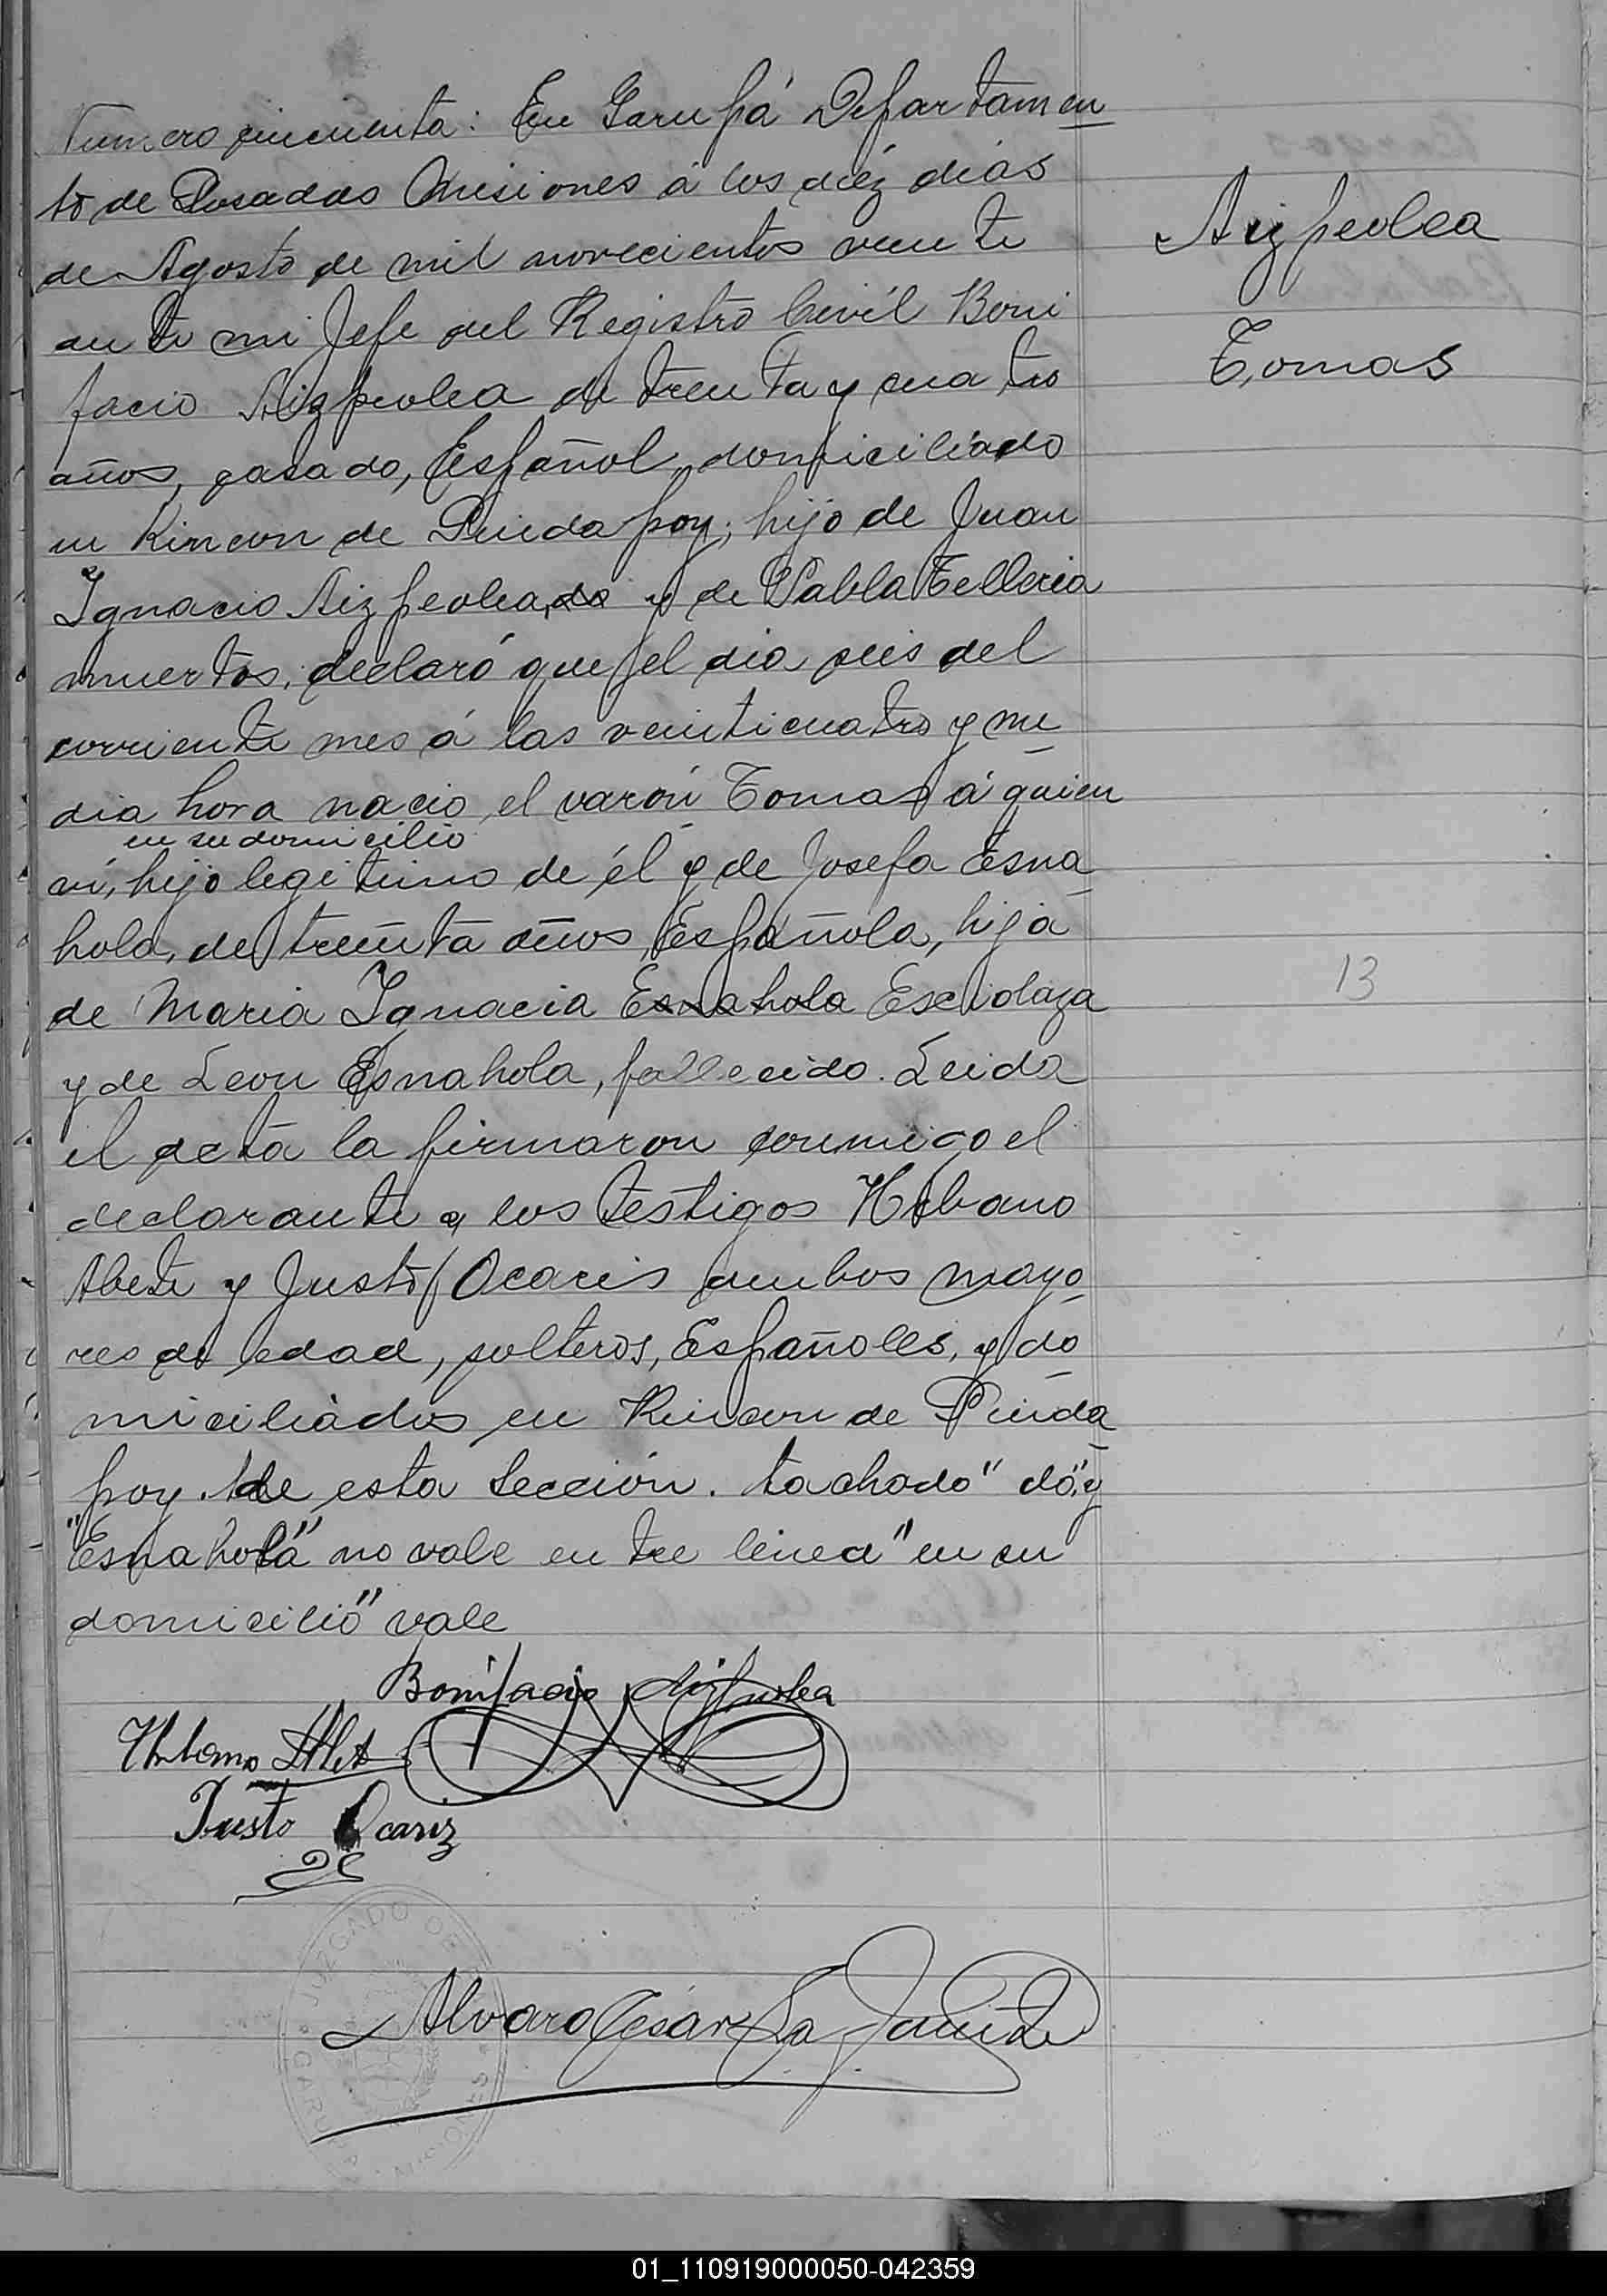 Numero cincuenta: En Garupá Departamen
to de Posadas Misiones á los diéz dias
de Agosto de mil novecientos veinte
ante mi Jefe del Registro Civíl Boni
facio Aizpeolea de treinta y cuatro
años, casado, Español, domiciliado
en Rincon de Pindapoy; hijo de Juan
Ignacio Aizpeolea, do y de Pabla Telleria
muertos; declaró que el dia seis del
corriente mes á las veinticuatro y me
dia hora nació el varón Tomas á quien
en su domicilio
ví, hijo legitimo de él y de Josefa Esna
hola, de treinta años, Española, hija
de Maria Ignacia Esnahola Escidaza
y de Leon Esnahola, fallecido. Leida
el acta la firmaron conmigo el
declarante y los testigos Urbano
Abete y Justo Ocaris ambos mayo
res de edad, solteros, Españoles, y do
miciliados en Rincon de Pinda
poy. de esta Sección. tachado "do" y
"Esnahola" no vale entre linea "en su
domicilio" vale
Bonifacio Aizpeolea
Urbano
Justo Ocariz
Alvaro César La
JUZGADO DE
GARUPA
MISIONES
Aizpeolea
Tomas
13
01_110919000050-042359